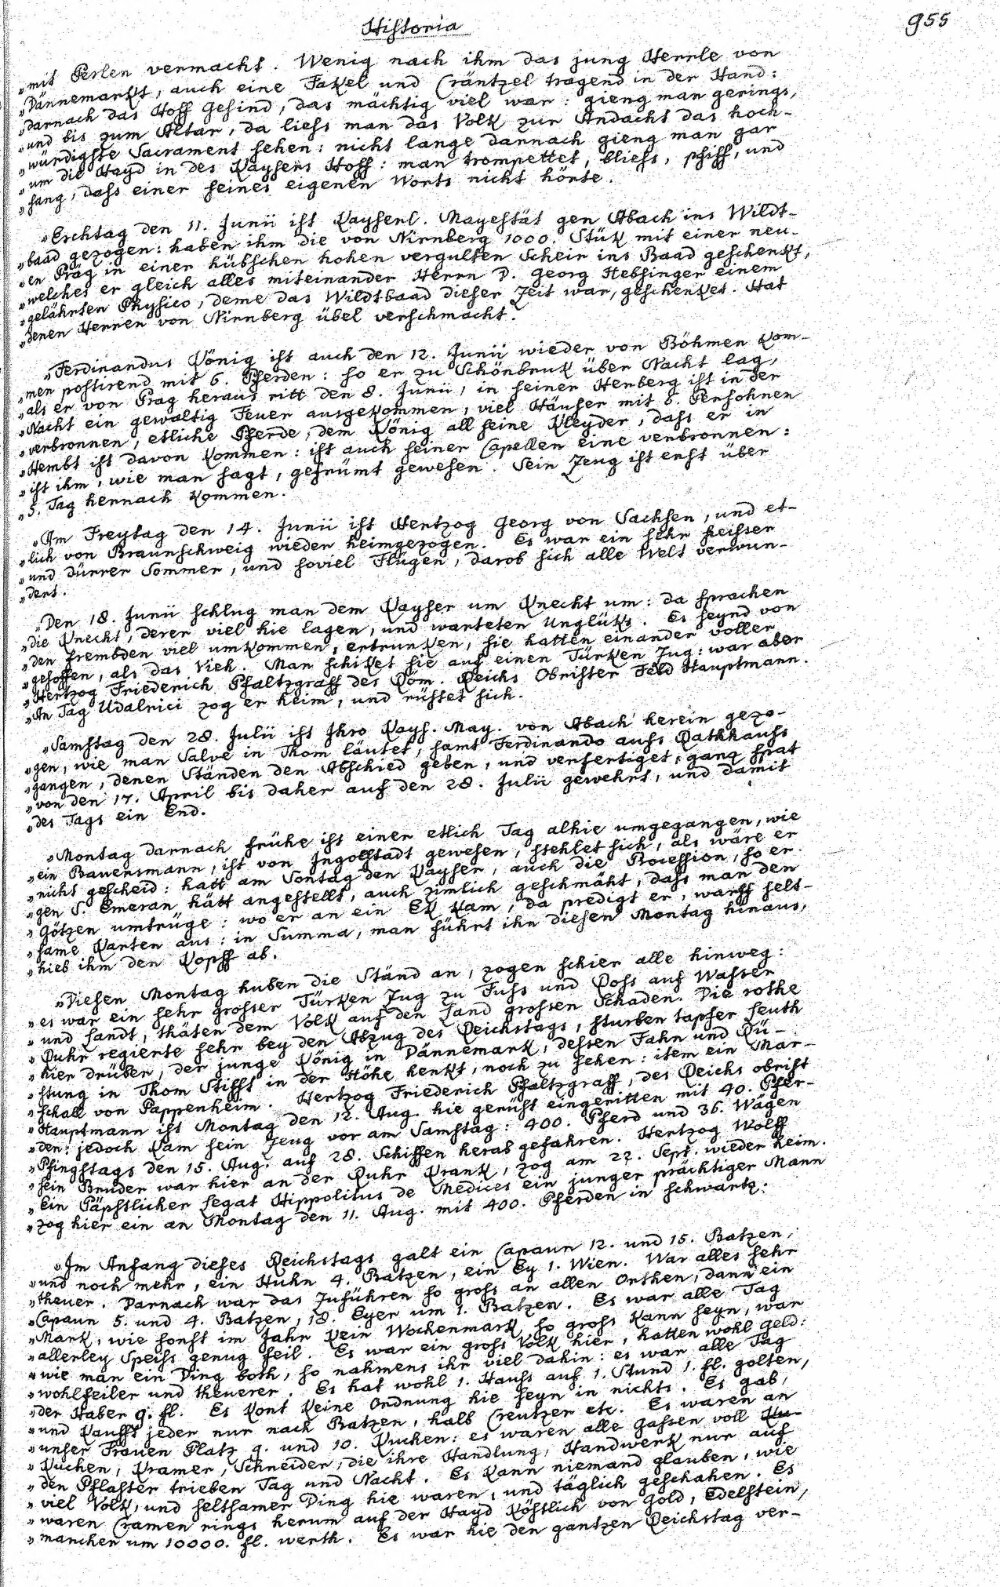 Historia
955
„mit Perlen vermacht. Wenig nach ihm das jung Herrle von
„Dännemarkt, auch eine Fakel und Cräntzel tragend in der Hand:
„darnach das Hoff Gesind, das mächtig viel war: gieng man gerings,
„und bis zum Altar, da liess man das Volk zur Andacht das hoch-
„würdigste Sacrament sehen: nicht lange darnach gieng man gar
„um die Hayd in des Kaysers Hoff: man trompettet, bliess, schiff, und
„sang, dass einer seines eigenen Worts nicht hörte.
„Erchtag den 11. Junii ist Kayserl. Mayestät gen Abach ins Wildt-
„baad gezogen: haben ihm die von Nirnberg 1000. Stük mit einer neu-
„en Präg in einer hübschen hohen vergulten Scheir ins Baad geschenkt,
„welches er gleich alles miteinander Herrn D. Georg Hebsinger einem
„gelährten Physico, deme das Wildtbaad dieser Zeit war, geschenket. Hat
„denen Herren von Nirnberg übel verschmacht.
„Ferdinandus König ist auch den 12. Junii wieder von Böhmen kom-
„men postirend mit 6. Pferden: so er zu Schönbruk über Nacht lag,
„als er von Prag heraus ritt den 8. Junii, in seiner Herberg ist in der
„Nacht ein gewaltig Feuer ausgekommen, viel Häuser mit 8. Persohnen
„verbronnen, etliche Pferde, dem König all seine Kleyder, dass er in
„Hembt ist davon kommen: ist auch seiner Capellen eine verbronnen:
„ist ihm, wie man sagt, gefrümt gewesen. Sein Zeug ist erst über
„5. Tag hernach kommen.
„Am Freytag den 14. Junii ist Hertzog Georg von Sachsen, und et-
„lich von Braunschweig wieder heimgezogen. Es war ein sehr heisser
„und dürrer Sommer, und soviel Flügen, darob sich alle Welt verwun-
„dert.
„Den 18. Junii schlug man dem Kayser um Knecht um: da sprachen
„die Knecht, derer viel hie lagen, und warteten Unglüks. Es seynd von
„den frembden viel umkommen, ertrunken, sie hatten einander voller
„gesoffen, als das Vieh. Man schiket sie auf einen Türken Zug: war aber
„Hertzog Friederich Pfaltzgraff des Röm. Reichs Obrister Feld Hauptmann.
„An Tag Udalrici zog er heim, und rüstet sich.
„Samstag den 28. Julii ist Ihro Kays. May. von Abach herein gezo-
„gen, wie man Salve in Thom läutet, samt Ferdinando aufs Rathhaus
„gangen, denen Ständen den Abschied geben, und verfertiget, gantz spat
„von den 17. April bis daher auf den 28. Julii gewehrt, und damit
„des Tags ein End.
„Montag darnach frühe ist einer etlich Tag alhie umgegangen, wie
„ein Bauersmann, ist von Ingolstadt gewesen, stehlet sich, als wäre er
„nicht gescheid: hatt am Sontag den Kayser, auch die Procession, so er
„gen S. Emeran hätt angestellt, auch zimlich geschmäht, dass man den
„Götzen umtrüge: wo er an ein Ek kam, da predigt er, warff selt-
„same Karten aus: in Summa, man führt ihn diesen Montag hinaus,
„hieb ihm den Kopff ab.
„Diesen Montag huben die Ständ an, zogen schier alle hinweg:
„es war ein sehr grosser Türken Zug zu Fuss und Ross auf Wasser
„und Landt, thäten dem Volk auf den Land grossen Schaden. Die rothe
„Ruhr regierte sehr bey den Abzug des Reichstags, sturben tapfer Leuth
„hier drüben, der junge König in Dännemark, dessen Fahn und Rü-
„stung in Thom Stifft in der Höhe henkt, noch zu sehen: item ein Mar-
„schalk von Pappenheim. Hertzog Friederich Pfaltzgraff, des Reichs obrist
„Hauptmann ist Montag den 12. Aug. hie gerüst eingeritten mit 40. Pfer-
„den: jedoch kam sein Zeug vor am Samstag: 400. Pferd und 36. Wägen
„Pfingstags den 15. Aug. auf 28. Schiffen herab gefahren. Hertzog Wolff
„sein Bruder war hier an der Ruhr krank, zog am 22. Sept. wieder heim.
„Ein Päpstlicher Legat Hippolitus de Medices ein junger prächtiger Mann
„zog hier ein an Montag den 11. Aug. mit 400. Pferden in schwartz:
„Im Anfang dieses Reichstags galt ein Capaun 12. und 15. Batzen,
„und noch mehr, ein Huhn 4. Batzen, ein Ey 1. Wien. War alles sehr
„theuer. Darnach war das Zuführen so gross an allen Orthen, dann ein
„Capaun 5. und 4. Batzen, 18. Eyer um 1. Batzen. Es war alle Tag
„Mark, wie sonst im Jahr kein Wochenmark so gross kann seyn, war
„allerley Speiss genug feil. Es war ein gross Volk hier, hatten wohl Geld:
„wie man ein Ding both, so nahmens ihr viel dahin: es war alle Tag
„wohlfeiler und theuerer. Es hat wohl 1. Hauss auf 1. Stund 1. fl. golten,
„der Haber 9. fl. Es kont keine Ordnung hie seyn in nichts. Es gab,
„und kaufft jeder nur nach Batzen, halb Creutzer etc. Es waren an
„unser Frauen Platz 9. und 10. Kuchen: es waren alle Gassen voll
„Kuchen, Kramer, Schneider, die ihre Handlung, Handwerk nur auf
„den Pflaster trieben Tag und Nacht. Es kann niemand glauben, wie
„viel Volk, und seltsamer Ding hie waren, und täglich geschahen. Es
„waren Cramen rings herum auf der Hayd köstlich von Gold, Edelstein,
„mancher um 10000. fl. werth. Es war hie den gantzen Reichstag ver-